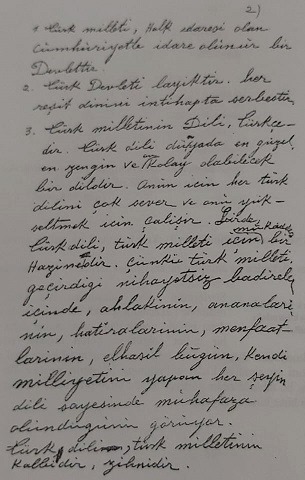 2)
1. Türk milleti, Halk idaresi olan
Cümhuriyetle idare olunur bir
Devlettir.
2. Türk Devleti layiktir. her
reşit dinini intihapta serbesttir.
3. Türk milletinin Dili, Türkçe-
dir. Türk dili dünyada en güzel,
en zengin ve kolay olabilecek
bir dildir. Onun için her türk
dilini çok sever ve onu yük-
seltmek için çalışır. Bir de
mukaddes
Türk dili, türk milleti için bir
Hazinedir. Çünkü türk milleti
geçirdiği nihayetsiz badireler
içinde, ahlakinin, ananaleri-
nin, hatıralarının, menfaat-
larının, elhasıl bügün, kendi
milliyetini yapan her şeyin
dili sayesinde muhafaza
olunduğunu görüyor.
Türk dili, türk milletinin
Kalbidir, zihnidir.